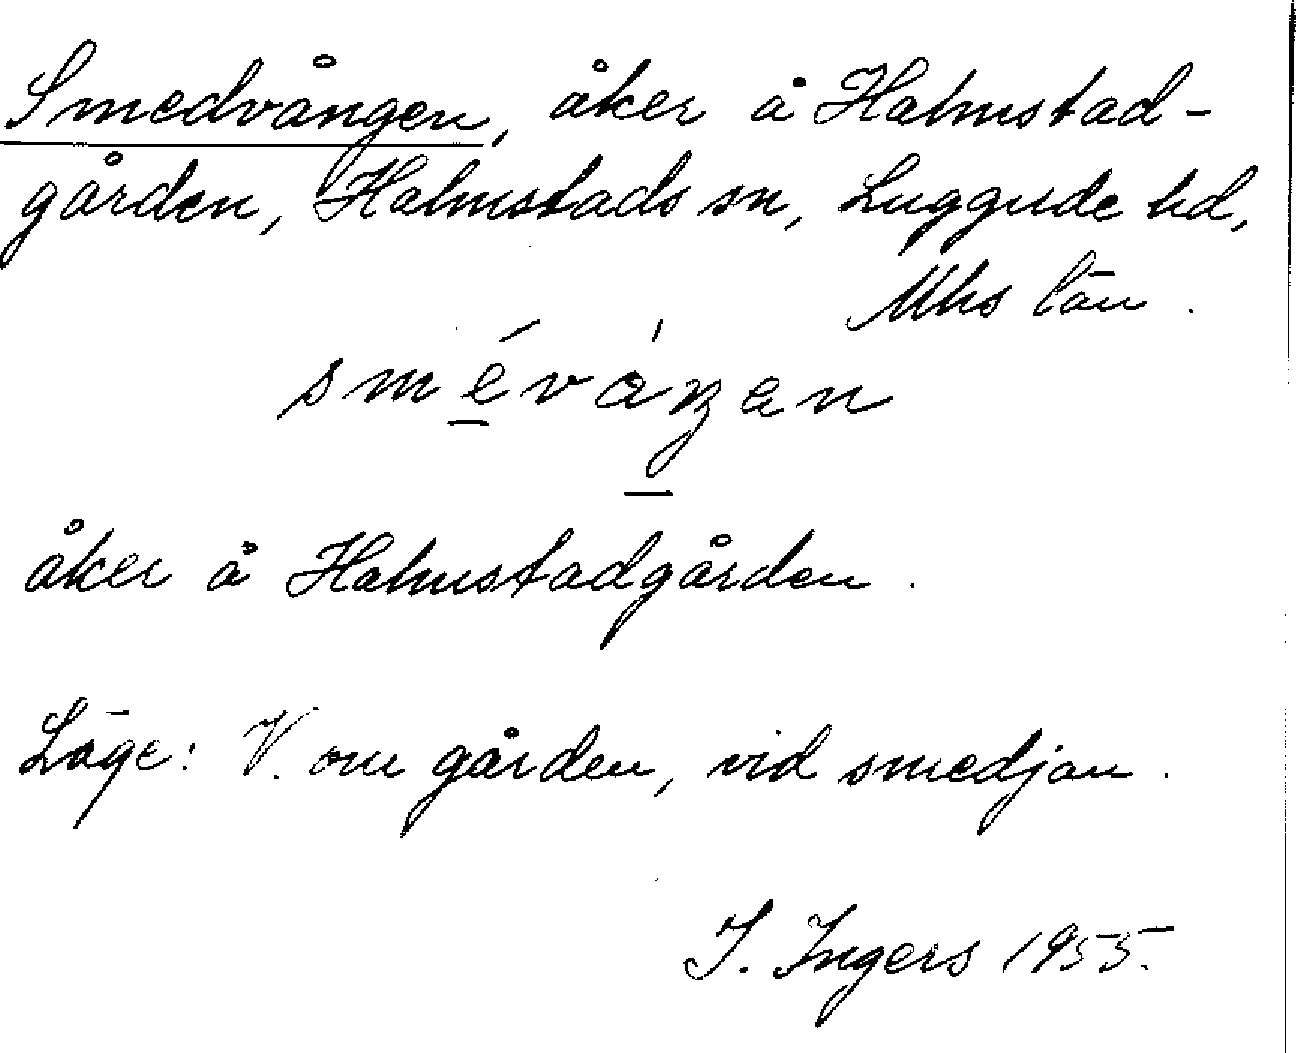 Smedvången, åker å Halmstad-
gården, Halmstads sn, Luggude hd,
Mhs län.
smévåŋen
åker å Halmstadgården.
Läge: V. om gården, vid smedjan.
I. Ingers 1955.